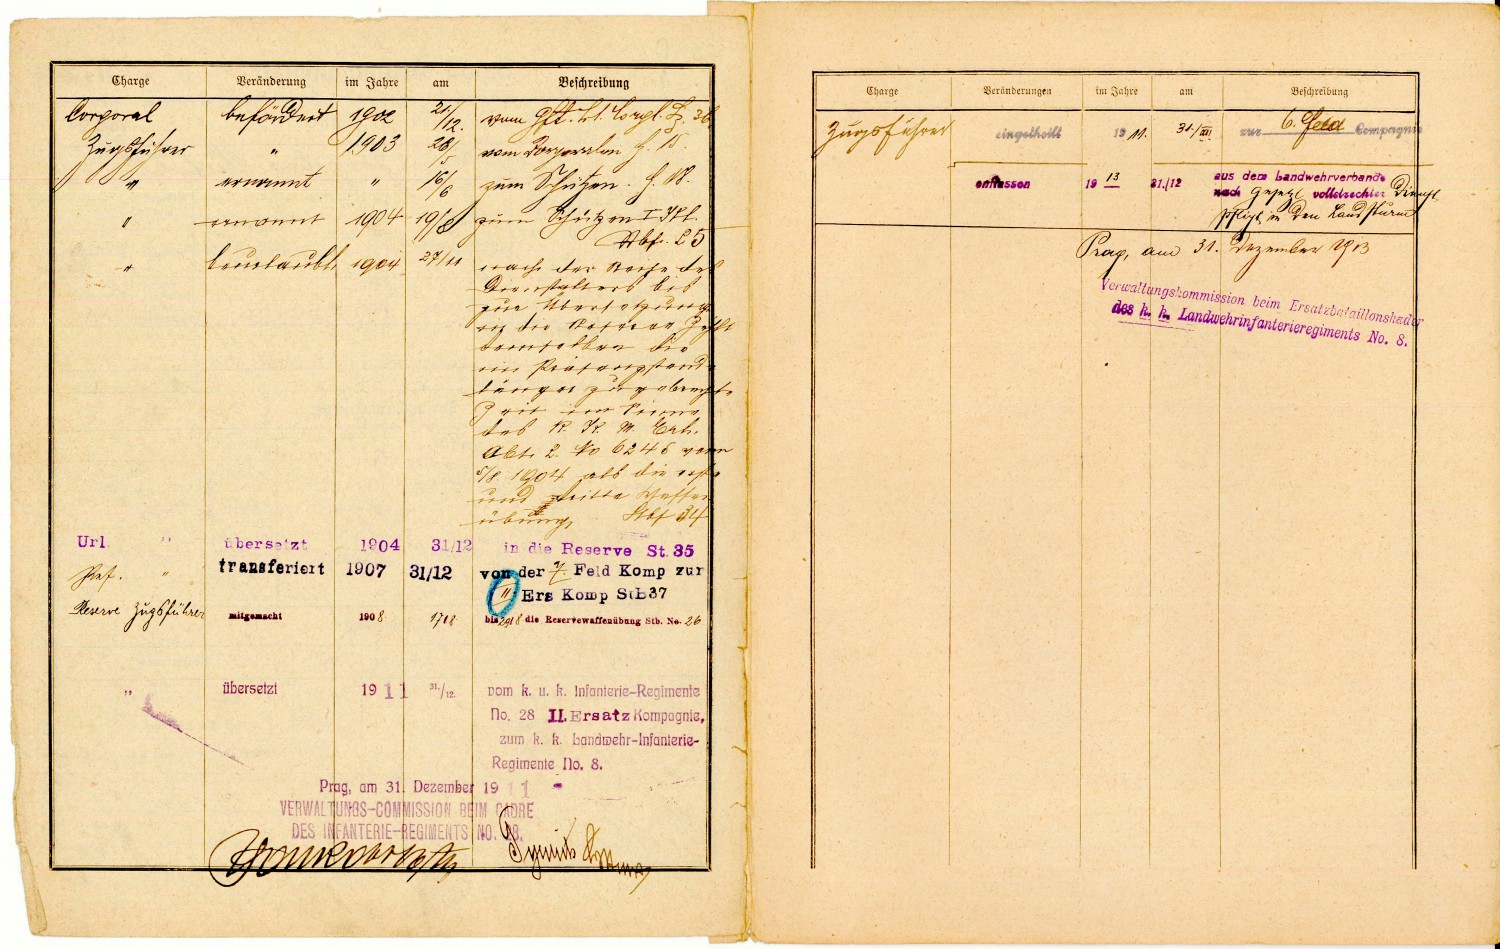 Charge Veränderung im Jahre am Beschreibung
Corporal befördert 1902 21/12. vom Gft. z. Corpl. 36
Zugsführer " 1903 28/5 vom Corporalen H. 15
" ernannt " 16/6 zum Schützen. H. 18.
" ernannt 1904 19/8 zum Schützen I Kl.
Stbf. 25
" beurlaubt 1904 27/11 nach der Reihe des
Dienstalters bis
zur Übersetzung
in die Reserve
demselben die
im Präsenzstande
länger zugebrachte
Zeit im Sinne
des R. K. M. Erl.
Abt. 2. No 6245 vom
5/8. 1904 als die erste
und dritte Waffen
übung, Stbf 34
Url. " übersetzt 1904 31/12 in die Reserve St. 35
Res. " transferiert 1907 31/12 von der 7. Feld Komp zur
II Ers Komp StB 37
Reserve Zugsführer mitgemacht 1908 17/8 bis 29/8 die Reservewaffenübung Stb. No. 26
" übersetzt 1911 31./12. vom k. u. k. Infanterie-Regimente
No. 28 II. Ersatz Kompagnie,
zum k. k. Landwehr-Infanterie-
Regimente No. 8.
Prag, am 31. Dezember 1911
VERWALTUNGS-COMMISSION BEIM CADRE
DES INFANTERIE-REGIMENTS NO. 28.
Charge Veränderungen im Jahre am Beschreibung
Zugsführer eingeteilt 1911. 31./XII zur 6. Feld Compagnie
entlassen 1913 31./12 aus dem Landwehrverbande
nach Gesetzl vollstreckter Dienst
pflicht in den Landsturm
Prag, am 31. Dezember 1913
Verwaltungskommission beim Ersatzbataillonskader
des k. k. Landwehrinfanterieregiments No. 8.